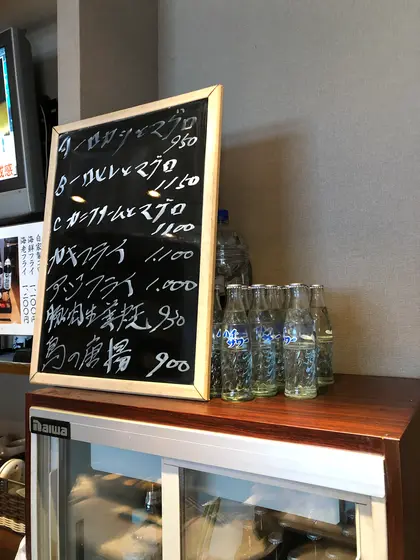 A-ロカツとマグロ
950
B-ロヒレとマグロ
1150
C カニクリームとマグロ
1100
カキフライ 1.100
アジフライ 1.000
豚肉生姜焼 950
鳥の唐揚 900
自家製
海鮮フライ
海老フライ
一、一〇〇円
一、四〇〇円
Daiwa